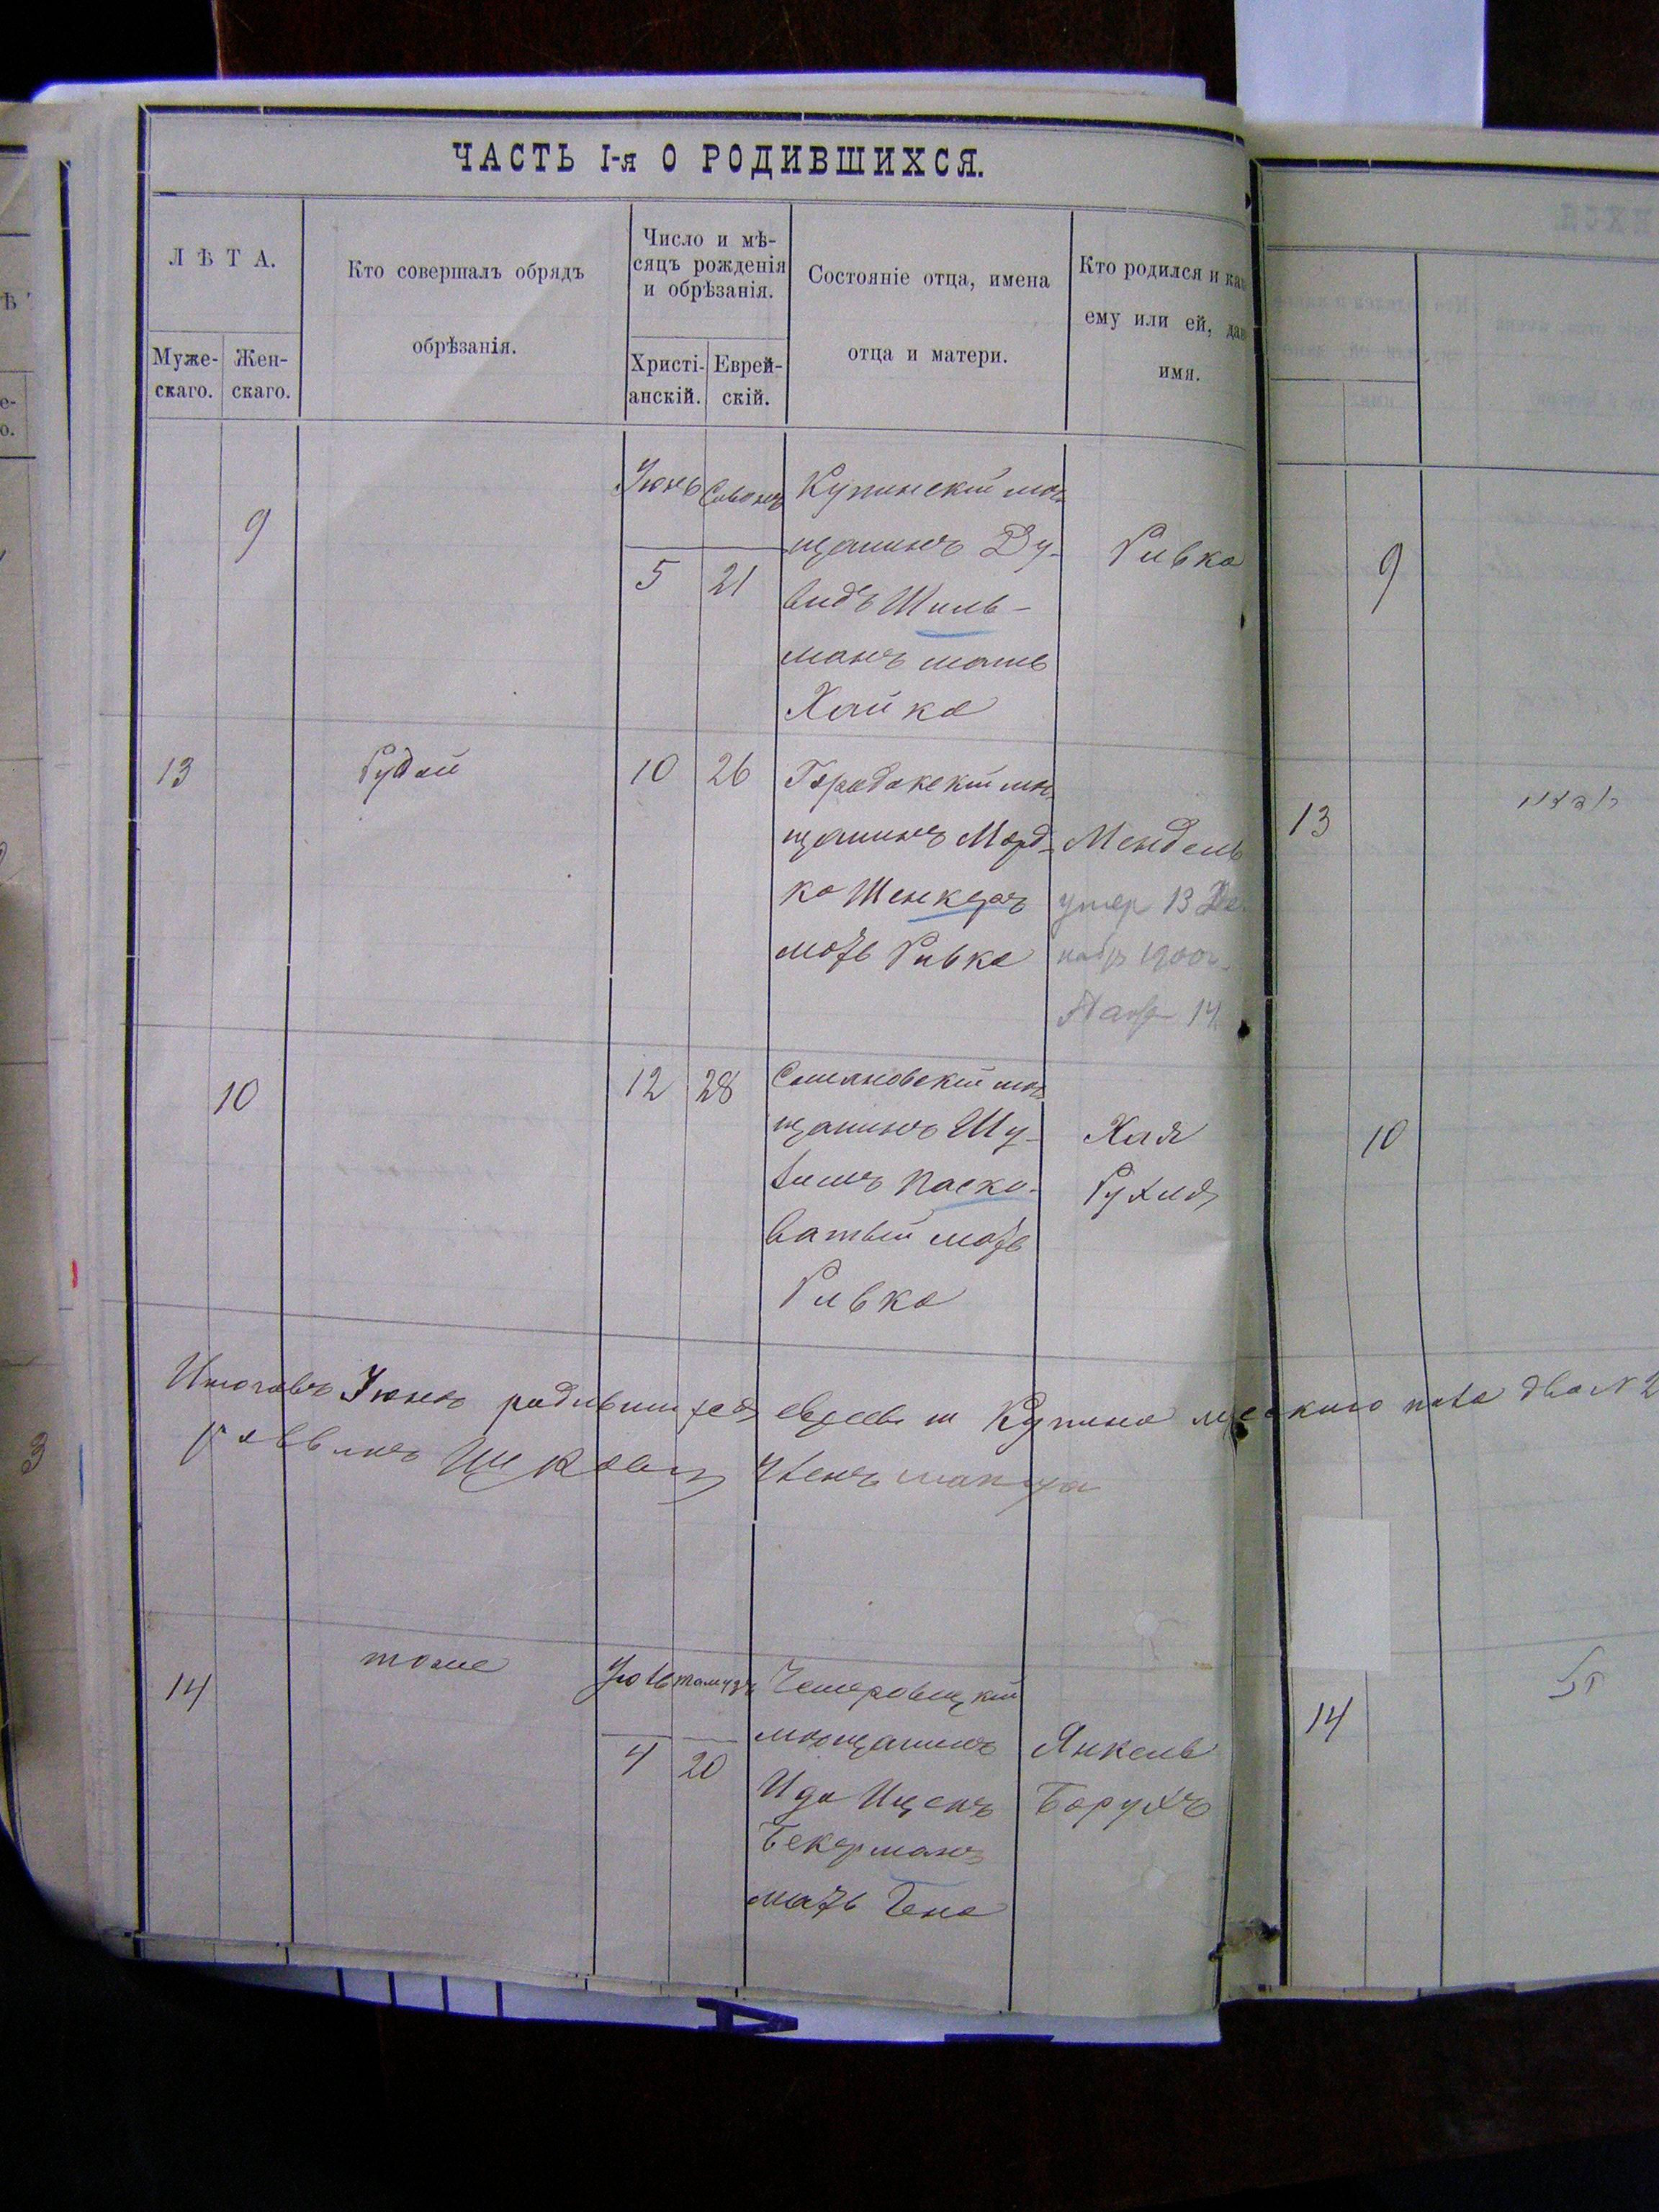 ЧАСТЬ I-я О РОДИВШИХСЯ.
ЛѢТА.
Муже-
скаго.
Жен-
скаго.
Кто совершалъ обрядъ
обрѣзанія.
Число и мѣ-
сяцъ рожденія
и обрѣзанія.
Христі-
анскій.
Еврей-
скій.
Состояніе отца, имена
отца и матери.
Кто родился и как
ему или ей, дан
имя.
9
Іюнь
5
Сивонъ
21
Купинскій мѣ-
щанинъ Ду-
видъ Шиль-
манъ мать
Хайка
Ривка
13
Рудой
10
26
Городокскій мѣ-
щанинъ Морд-
ко Шенкеръ
мать Ривка
Мендель
умер 13 Де-
кабр 1900г.
14
10
12
28
Сатановскій мѣ-
щанинъ Шу-
лимъ Паско-
ватый мать
Ривка
Хая
Рухля
Итого въ Іюнѣ родившихся евреевъ м Купина мужскаго пола два № 2
раввинъ
14
тоже
Іюль
4
Тамузъ
20
Чемеровецкій
мѣщанинъ
Ицекъ
Бекерманъ
мать Бена
Янкель
Борухъ
9
13
10
14